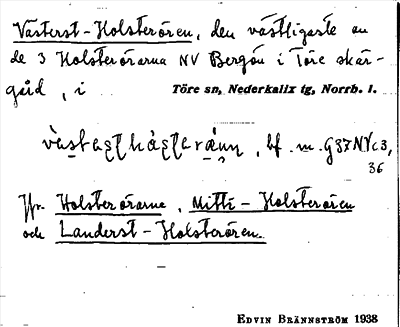 Västerst-Holsterören, den västligaste av
de 3 Holsterörarna NV Bergön i Töre skär-
gård, i Töre sn, Nederkalix tg, Norrb. l.
bf. m. G37NVc3,
36
Jfr Holsterörarne, Mitti-Holsterören
och Landerst-Holsterören.
EDVIN BRÄNNSTRÖM 1938